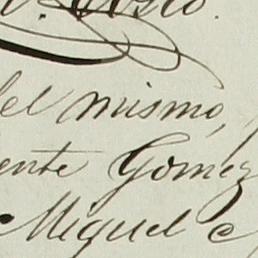 del mismo,
ente Gomez
Miguel e